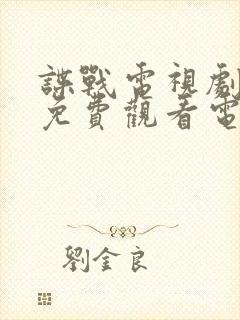 諜戰電視劇
免費觀看電
劉金良